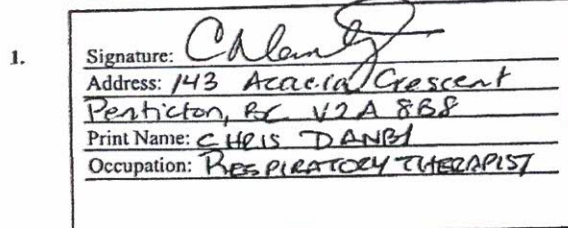 1.
Signature:
Address: 143 Acacia Crescent
Penticton, BC V2A 8B8
Print Name: CHRIS DANBY
Occupation: RESPIRATORY THERAPIST